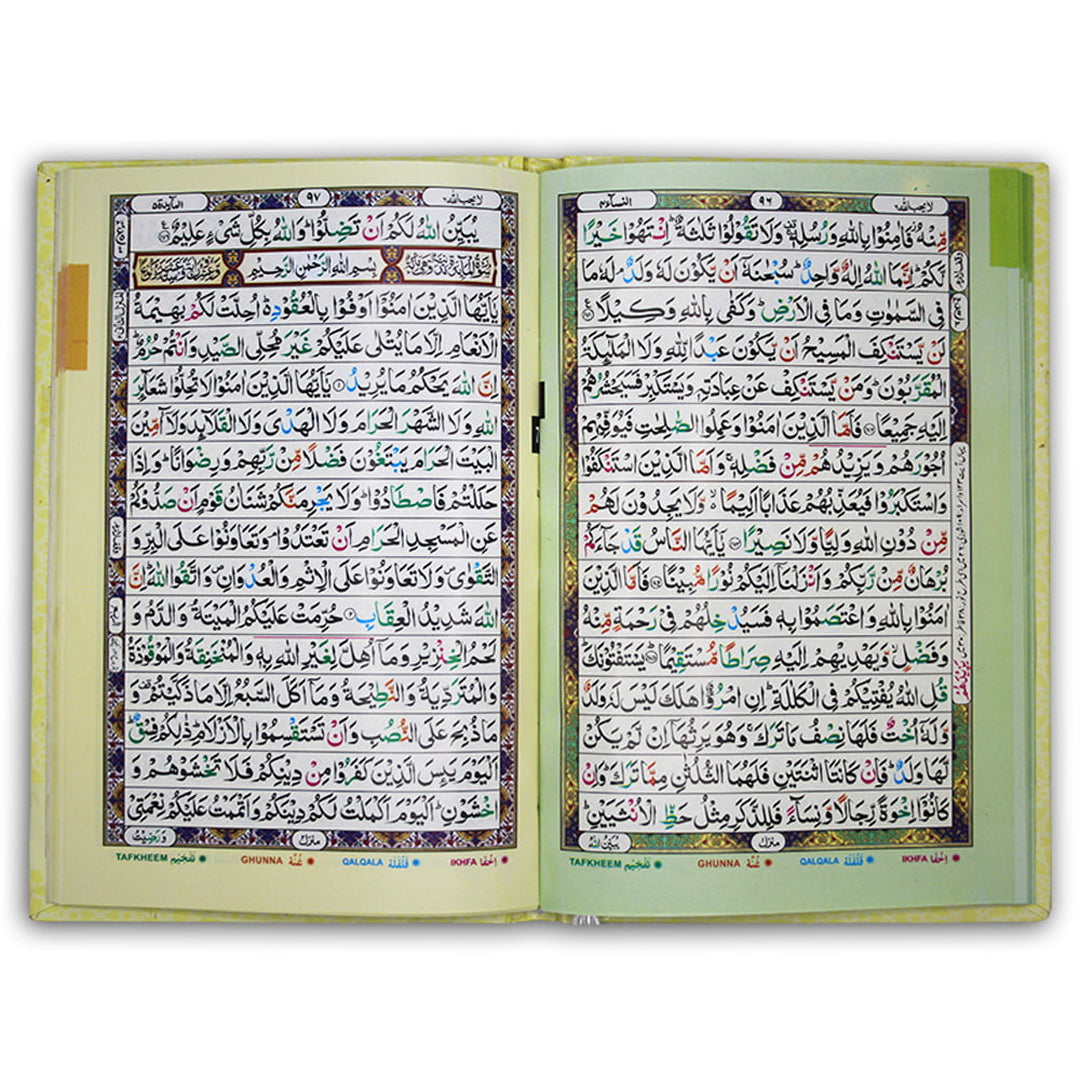 لا یحب الله ٦
٩٦
النسآء ٤
مِّنْهُ ۫ فَاٰمِنُوْا بِاللّٰهِ وَرُسُلِهٖ ۫ وَلَا تَقُوْلُوْا ثَلٰثَةٌ ؕ اِنْتَهُوْا خَيْرًا
لَّكُمْ ؕ اِنَّمَا اللّٰهُ اِلٰهٌ وَّاحِدٌ ؕ سُبْحٰنَهٗٓ اَنْ يَّكُوْنَ لَهٗ وَلَدٌ ۘ لَهٗ مَا
فِى السَّمٰوٰتِ وَمَا فِى الْاَرْضِ ؕ وَكَفٰى بِاللّٰهِ وَكِيْلًا
لَنْ يَّسْتَنْكِفَ الْمَسِيْحُ اَنْ يَّكُوْنَ عَبْدًا لِّلّٰهِ وَلَا الْمَلٰٓئِكَةُ
الْمُقَرَّبُوْنَ ؕ وَمَنْ يَّسْتَنْكِفْ عَنْ عِبَادَتِهٖ وَيَسْتَكْبِرْ فَسَيَحْشُرُهُمْ
اِلَيْهِ جَمِيْعًا ۝ فَاَمَّا الَّذِيْنَ اٰمَنُوْا وَعَمِلُوا الصّٰلِحٰتِ فَيُوَفِّيْهِمْ
اُجُوْرَهُمْ وَيَزِيْدُهُمْ مِّنْ فَضْلِهٖ ۚ وَاَمَّا الَّذِيْنَ اسْتَنْكَفُوْا
وَاسْتَكْبَرُوْا فَيُعَذِّبُهُمْ عَذَابًا اَلِيْمًا ۙ وَّلَا يَجِدُوْنَ لَهُمْ
مِّنْ دُوْنِ اللّٰهِ وَلِيًّا وَّلَا نَصِيْرًا ۝ يٰٓاَيُّهَا النَّاسُ قَدْ جَآءَكُمْ
بُرْهَانٌ مِّنْ رَّبِّكُمْ وَاَنْزَلْنَآ اِلَيْكُمْ نُوْرًا مُّبِيْنًا ۝ فَاَمَّا الَّذِيْنَ
اٰمَنُوْا بِاللّٰهِ وَاعْتَصَمُوْا بِهٖ فَسَيُدْخِلُهُمْ فِىْ رَحْمَةٍ مِّنْهُ
وَفَضْلٍ ۙ وَّيَهْدِيْهِمْ اِلَيْهِ صِرَاطًا مُّسْتَقِيْمًا ۝ يَسْتَفْتُوْنَكَ
قُلِ اللّٰهُ يُفْتِيْكُمْ فِى الْكَلٰلَةِ ؕ اِنِ امْرُؤٌا هَلَكَ لَيْسَ لَهٗ وَلَدٌ
وَّلَهٗٓ اُخْتٌ فَلَهَا نِصْفُ مَا تَرَكَ ۚ وَهُوَ يَرِثُهَآ اِنْ لَّمْ يَكُنْ
لَّهَا وَلَدٌ ؕ فَاِنْ كَانَتَا اثْنَتَيْنِ فَلَهُمَا الثُّلُثٰنِ مِمَّا تَرَكَ ؕ وَاِنْ
كَانُوْٓا اِخْوَةً رِّجَالًا وَّنِسَآءً فَلِلذَّكَرِ مِثْلُ حَظِّ الْاُنْثَيَيْنِ ؕ
منزل ١
يبين الله
IKHFA اِخْفَا QALQALA قَلْقَلَة GHUNNA غُنَّة TAFKHEEM تَفْخِيْم
لا یحب الله ٦
٩٧
المآئدة ٥
يُبَيِّنُ اللّٰهُ لَكُمْ اَنْ تَضِلُّوْا ؕ وَاللّٰهُ بِكُلِّ شَىْءٍ عَلِيْمٌ
بِسْمِ اللّٰهِ الرَّحْمٰنِ الرَّحِيْمِ
يٰٓاَيُّهَا الَّذِيْنَ اٰمَنُوْٓا اَوْفُوْا بِالْعُقُوْدِ ؕ اُحِلَّتْ لَكُمْ بَهِيْمَةُ
الْاَنْعَامِ اِلَّا مَا يُتْلٰى عَلَيْكُمْ غَيْرَ مُحِلِّى الصَّيْدِ وَاَنْتُمْ حُرُمٌ ؕ
اِنَّ اللّٰهَ يَحْكُمُ مَا يُرِيْدُ ۝ يٰٓاَيُّهَا الَّذِيْنَ اٰمَنُوْا لَا تُحِلُّوْا شَعَآئِرَ
اللّٰهِ وَلَا الشَّهْرَ الْحَرَامَ وَلَا الْهَدْىَ وَلَا الْقَلَآئِدَ وَلَآ آٰمِّيْنَ
الْبَيْتَ الْحَرَامَ يَبْتَغُوْنَ فَضْلًا مِّنْ رَّبِّهِمْ وَرِضْوَانًا ؕ وَاِذَا
حَلَلْتُمْ فَاصْطَادُوْا ؕ وَلَا يَجْرِمَنَّكُمْ شَنَاٰنُ قَوْمٍ اَنْ صَدُّوْكُمْ
عَنِ الْمَسْجِدِ الْحَرَامِ اَنْ تَعْتَدُوْا ۘ وَتَعَاوَنُوْا عَلَى الْبِرِّ وَ
التَّقْوٰى ۪ وَلَا تَعَاوَنُوْا عَلَى الْاِثْمِ وَالْعُدْوَانِ ۪ وَاتَّقُوا اللّٰهَ ؕ اِنَّ
اللّٰهَ شَدِيْدُ الْعِقَابِ ۝ حُرِّمَتْ عَلَيْكُمُ الْمَيْتَةُ وَالدَّمُ وَ
لَحْمُ الْخِنْزِيْرِ وَمَآ اُهِلَّ لِغَيْرِ اللّٰهِ بِهٖ وَالْمُنْخَنِقَةُ وَالْمَوْقُوْذَةُ
وَالْمُتَرَدِّيَةُ وَالنَّطِيْحَةُ وَمَآ اَكَلَ السَّبُعُ اِلَّا مَا ذَكَّيْتُمْ ۫ وَ
مَا ذُبِحَ عَلَى النُّصُبِ وَاَنْ تَسْتَقْسِمُوْا بِالْاَزْلَامِ ؕ ذٰلِكُمْ فِسْقٌ ؕ
اَلْيَوْمَ يَئِسَ الَّذِيْنَ كَفَرُوْا مِنْ دِيْنِكُمْ فَلَا تَخْشَوْهُمْ وَ
اخْشَوْنِ ؕ اَلْيَوْمَ اَكْمَلْتُ لَكُمْ دِيْنَكُمْ وَاَتْمَمْتُ عَلَيْكُمْ نِعْمَتِىْ
منزل ٢
ورضيت
IKHFA اِخْفَا QALQALA قَلْقَلَة GHUNNA غُنَّة TAFKHEEM تَفْخِيْم